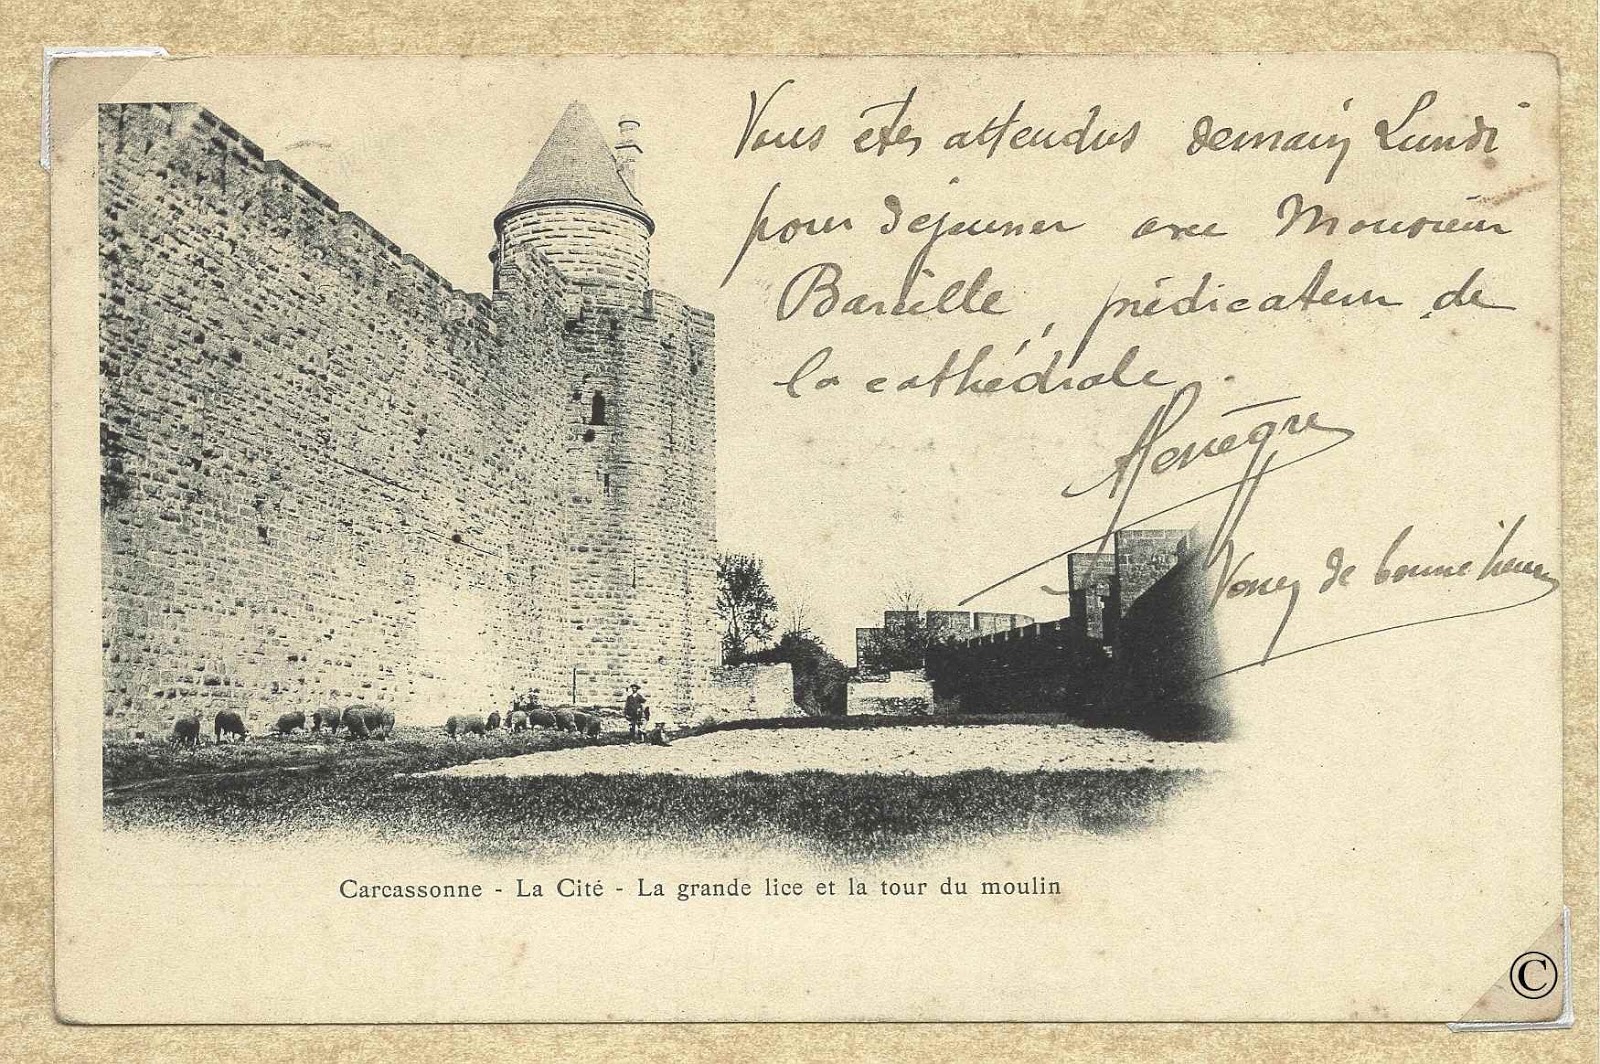 Vous êtes attendus demain Lundi
pour déjeuner avec Monsieur
Bareille, prédicateur de
la cathédrale.
Venez de bonne heure
Carcassonne - La Cité - La grande lice et la tour du moulin
©